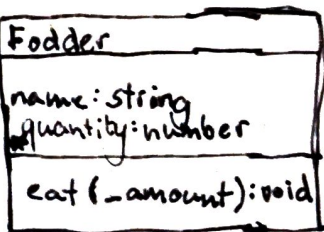 Fodder
name: string
quantity: number
eat (_amount): void